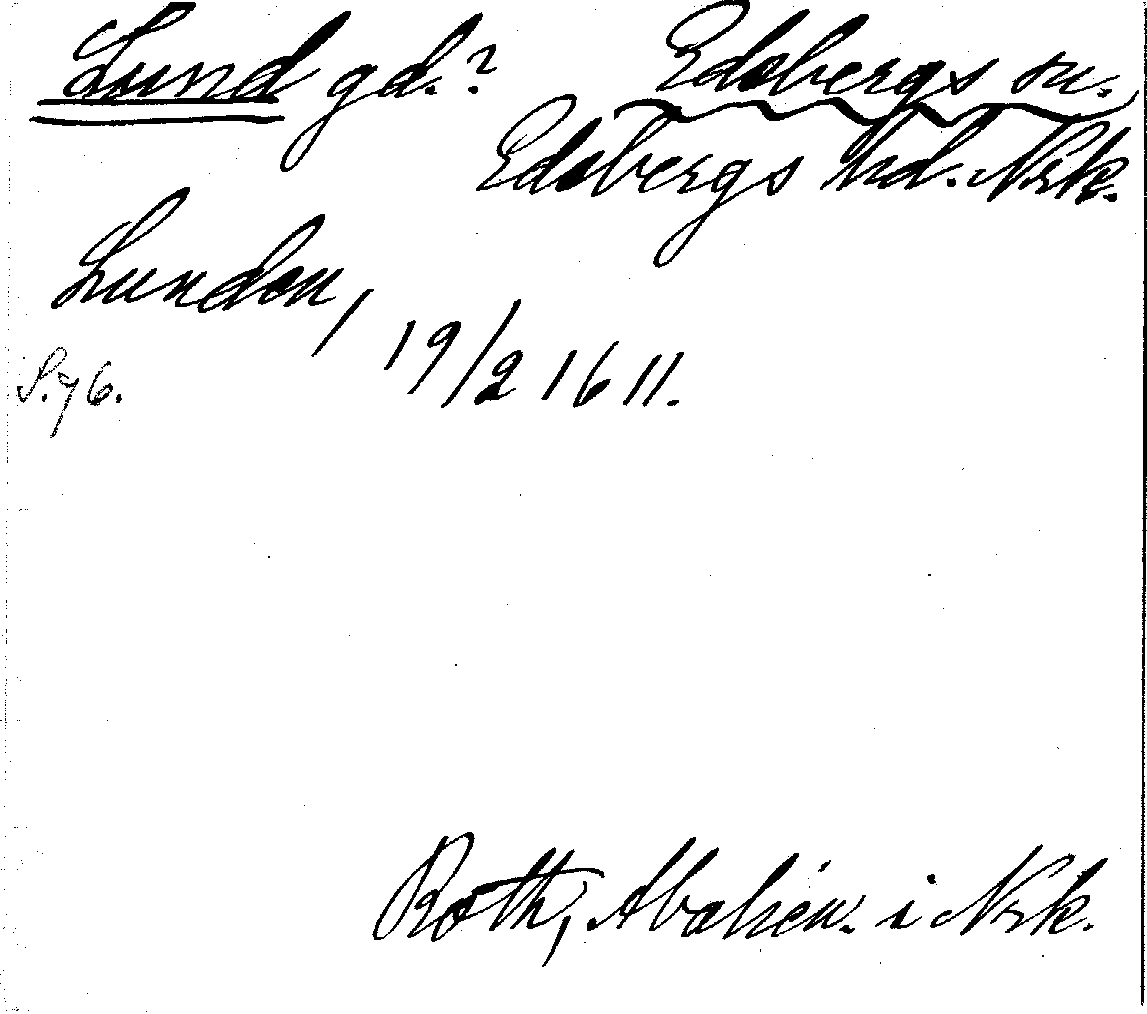 Lund gd.? Edsbergs sn.,
Edsbergs hd. Nrk.
Lunden,
19/2 1611.
S. 76.
Roth, i Nrk.